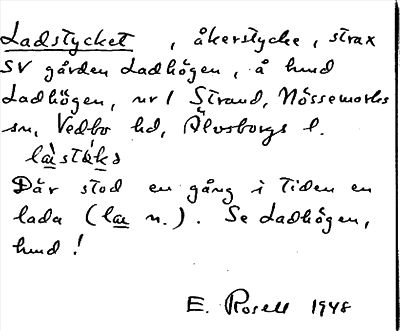 Ladstycket, åkerstycke, strax
SV gården Ladhögen, å hmd
Ladhögen, nr 1 Strand, Nössemarks
sn, Vedbo hd, Älvsborgs l.
Där stod en gång i tiden en
lada (la n.). Se Ladhögen,
hmd!
E. Rosell 1948